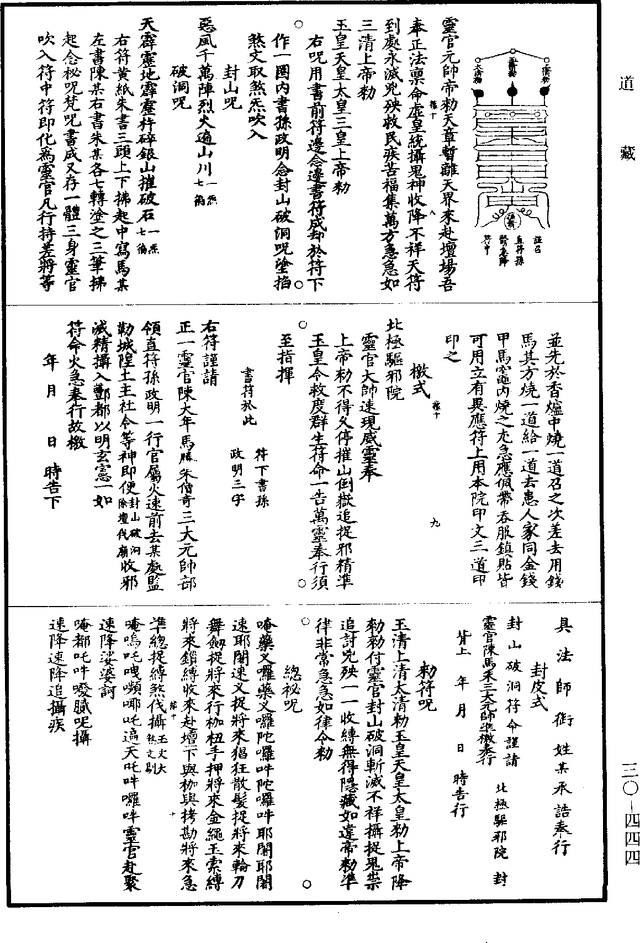 道藏
三〇-四四四
靈官元帥帝勑天章暫離天界來赴壇場吾
奉正法稟命虛皇統攝鬼神收降不祥天符
到處永滅兇殃救民疾苦福集萬方急急如
三清上帝勑
玉皇天皇太皇三皇上帝勑
右呪用書前符邊念邊書符成却於符下
作一圈內書孫政明念封山破洞呪塗掐
煞文取煞炁吹入
封山呪
惡風千萬陣烈火遍山川一炁七徧
破洞呪
天霹靂地霹靂杵碎銀山摧破石一炁七徧
右符黃紙朱書三頭上下拂起中寫馬某
左書陳某右書朱某各七轉塗之三筆拂
起念祕呪梵呪書成又存一體三身靈官
吹入符中符即化為靈官凡行持差將等
並先於香爐中燒一道召之次差去用錢
馬其方燒一道給一道去患人家同金錢
甲馬竈內燒之尤急應佩帶吞服鎮貼皆
可用立有異應符上用本院印文三道印
印之
檄式
北極驅邪院
靈官大師速現威靈奉
上帝勑不得久停摧山倒獄追捉邪精準
玉皇令救度群生符命一告萬靈奉行須
至指揮
書符於此
符下書孫
政明三字
右符謹請
正一靈官陳大年馬勝朱僧奇三大元帥部
領直符孫政明一行官屬火速前去某處監
勒城隍土主社令等神即便封山破洞除壇伐廟收邪
滅精攝入酆都以明玄憲一如
符命火急奉行故檄
年 月 日 時告下
具法師銜姓某承誥奉行
封皮式
封山破洞符命謹請
靈官陳馬朱三大元帥準檄奉行
北極驅邪院 封
背上 年 月 日 時告行
勑符呪
玉清上清太清勑玉皇天皇太皇勑上帝降
勑勑付靈官封山破洞斬滅不祥攝捉鬼祟
追討兇殃一一收縛無得隱藏如違帝勑準
律非常急急如律令勑
總祕呪
唵藥叉囉藥叉囉陀囉吽陀囉吽耶闍耶闍
速耶闍速叉捉將來猖狂散髮捉將來輪刀
舞劍捉將來行枷杻手押將來金繩玉索縛
將來鎖縛收來赴壇下與枷與拷勘將來急
準總捉縛煞伐攝
速降娑婆訶
速降速降追攝疾